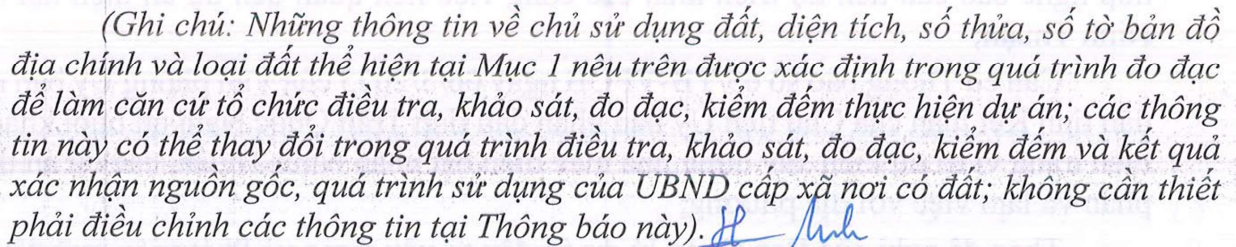 (Ghi chú: Những thông tin về chủ sử dụng đất, diện tích, số thửa, số tờ bản đồ
địa chính và loại đất thể hiện tại Mục 1 nêu trên được xác định trong quá trình đo đạc
để làm căn cứ tổ chức điều tra, khảo sát, đo đạc, kiểm đếm thực hiện dự án; các thông
tin này có thể thay đổi trong quá trình điều tra, khảo sát, đo đạc, kiểm đếm và kết quả
xác nhận nguồn gốc, quá trình sử dụng của UBND cấp xã nơi có đất; không cần thiết
phải điều chỉnh các thông tin tại Thông báo này).